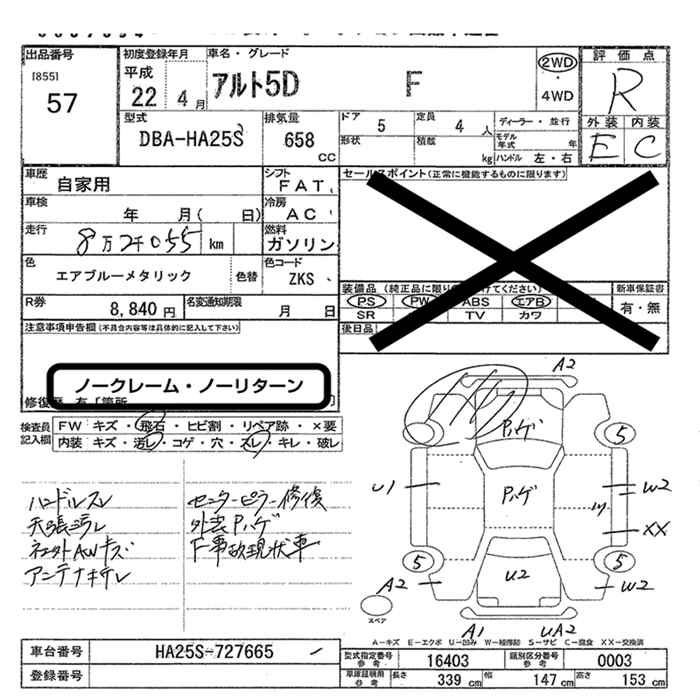 出品番号
[855]
57
初度登録年月
平成
22 4 月
車名・グレード
アルト5D F
2WD
・
4WD
評価点
R
型式
DBA-HA25S
排気量
658 CC
ドア
5
定員
4 人
ディーラー・並行
形状
積載
kg
モデル年式
年
ハンドル 左・右
外装 内装
E C
車歴
自家用
シフト
FAT
セールスポイント(正常に機能するものに限ります)
車検
年 月( 日)
冷房
AC
走行
8万2千055 km
燃料
ガソリン
色
エアブルーメタリック
色替
色コード
ZKS
装備品
新車保証書
PS PW ABS エアB
SR TV カワ
有・無
R券
8,840 円
名変通知期限
月 日
後日品
注意事項申告欄(不具合内容等は具体的に記入して下さい)
ノークレーム・ノーリターン
検査員記入欄
FW キズ・飛石・ヒビ割・リペア跡・×要
内装 キズ・汚レ・コゲ・穴・スレ・キレ・破レ
ハンドルスレ
天張汚レ
アンテナキレ
センターピラー修復
外装Pハゲ
F事故現状車
A2
Pハゲ
5
U1
Pハゲ
W2
XX
5
5
U2
A2
W2
A1
UA2
スペア
A-キズ E-エクボ U-凹み W-補修跡 S-サビ C-腐食 XX-交換済
車台番号
HA25S-727665
登録番号
型式指定番号
参考
16403
類別区分番号
参考
0003
車庫証明用
参考
長さ
339 cm
幅
147 cm
高さ
153 cm